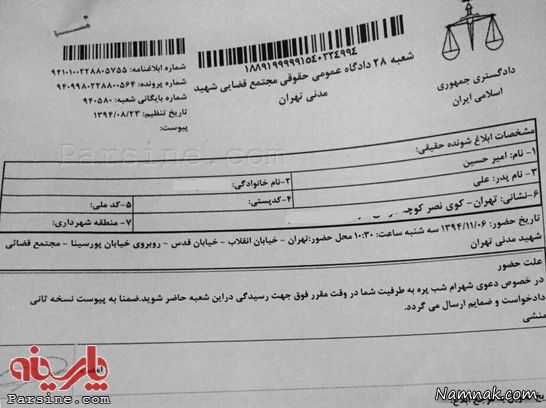 دادگستری جمهوری
اسلامی ایران
۱۸۸۹۱۹۹۹۹۱۵۴۰۲۲۴۹۹۴
شعبه ۲۸ دادگاه عمومی حقوقی مجتمع قضایی شهید
مدنی تهران
شماره ابلاغنامه: ۹۴۱۰۱۰۰۲۲۸۸۰۵۷۵۵
شماره پرونده: ۹۴۰۹۹۸۰۲۲۸۸۰۰۵۶۴
شماره بایگانی شعبه: ۹۴۰۵۸۰
تاریخ تنظیم: ۱۳۹۴/۰۸/۲۳
پیوست:
Parsine.com
مشخصات ابلاغ شونده حقیقی:
۱-نام: امیر حسین
۲-نام خانوادگی:
۳-نام پدر: علی
۴-کدپستی:
۵-کد ملی:
۶-نشانی: تهران - کوی نصر کوچه
۷- منطقه شهرداری:
تاریخ حضور: ۱۳۹۴/۱۱/۰۶ سه شنبه ساعت: ۱۰:۳۰ محل حضور:تهران - خیابان انقلاب - خیابان قدس - روبروی خیابان پورسینا - مجتمع قضائی
شهید مدنی تهران
علت حضور
در خصوص دعوی شهرام شب پره به طرفیت شما در وقت مقرر فوق جهت رسیدگی دراین شعبه حاضر شوید.ضمنا به پیوست نسخه ثانی
دادخواست و ضمایم ارسال می گردد.
منشی
امضا
پارسینه
Parsine.com
Namnak.com